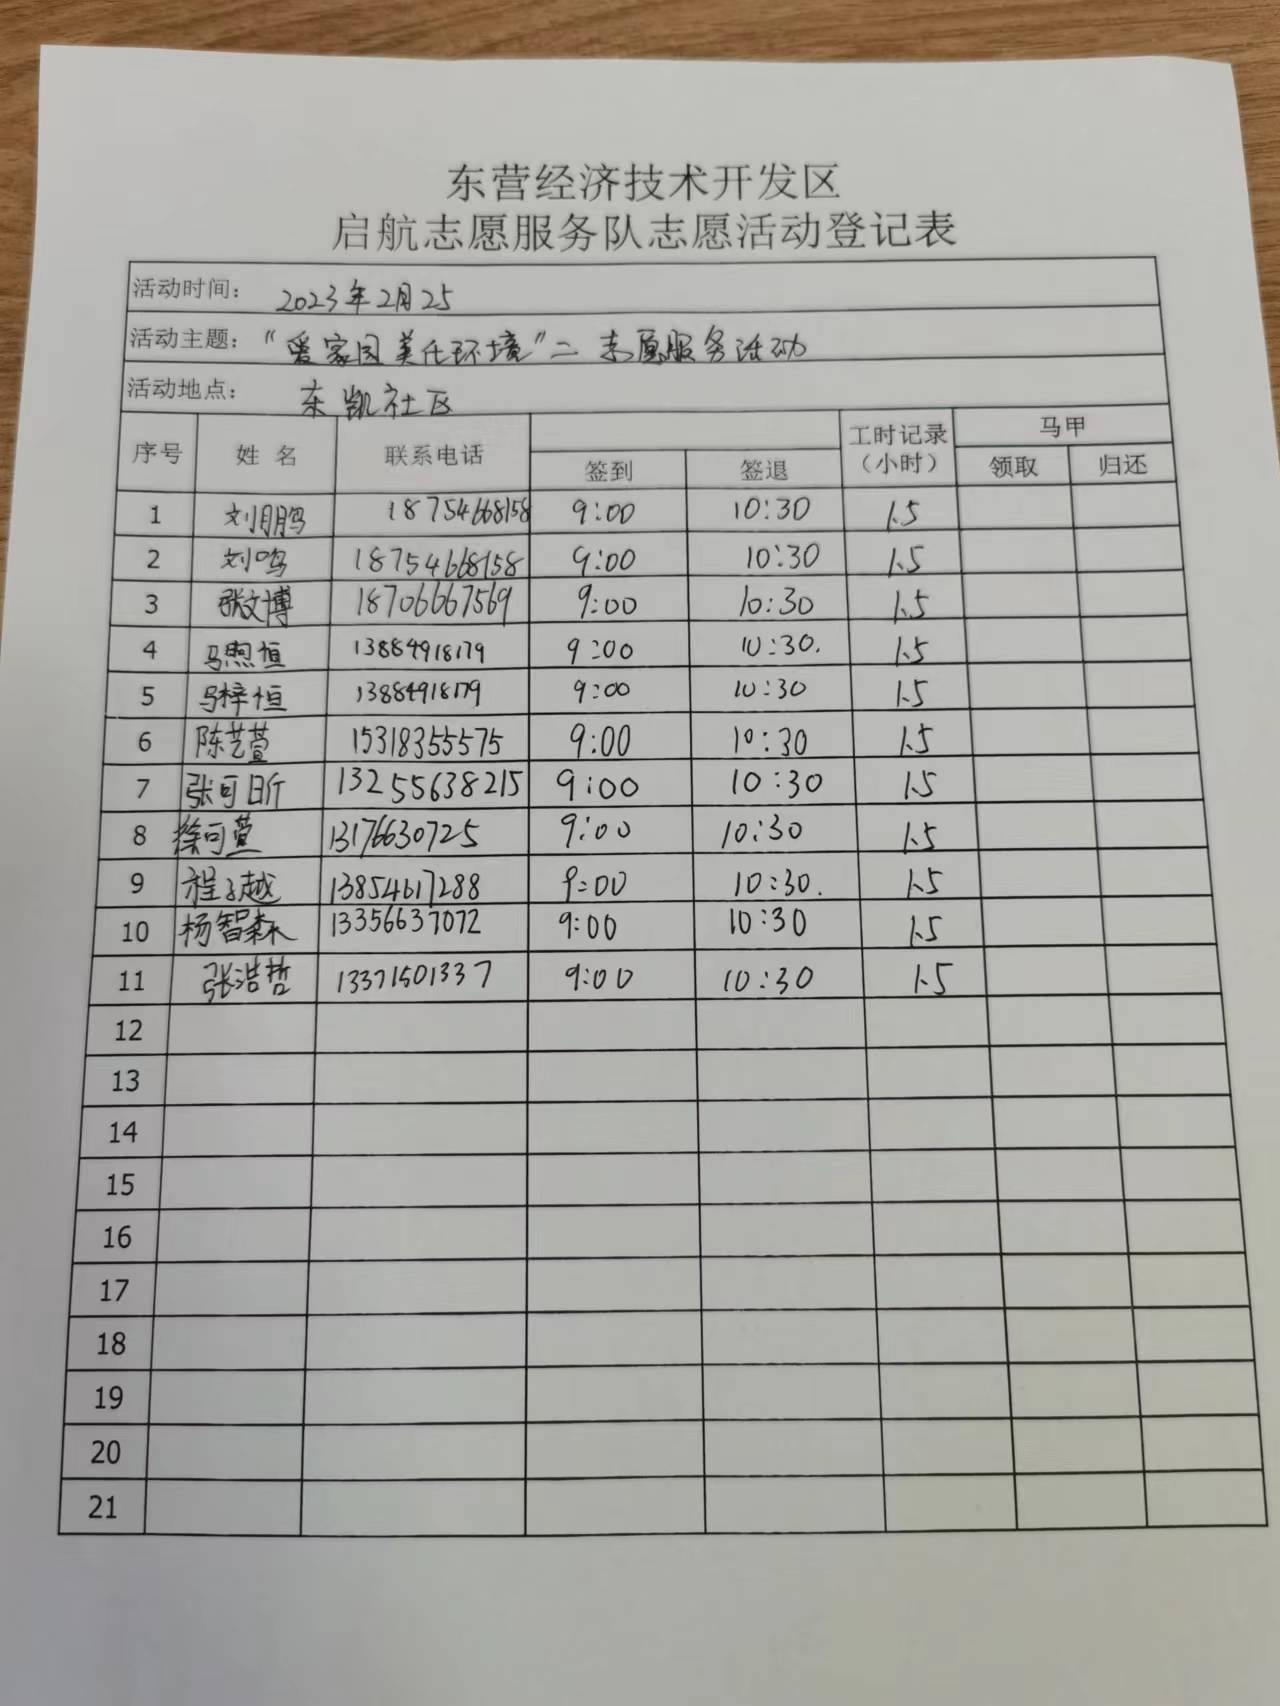 东营经济技术开发区
启航志愿服务队志愿活动登记表
活动时间： 2023年2月25
活动主题： "爱家园美化环境"二 志愿服务活动
活动地点： 东凯社区
序号 姓名 联系电话 签到 签退 工时记录（小时） 马甲 领取 归还
1 刘鹏 18754668158 9:00 10:30 1.5
2 刘鸣 18754668158 9:00 10:30 1.5
3 张文博 18706667569 9:00 10:30 1.5
4 马煦恒 13884918179 9:00 10:30. 1.5
5 马梓恒 13884918179 9:00 10:30 1.5
6 陈艺萱 15318355575 9:00 10:30 1.5
7 张可昕 13255638215 9:00 10:30 1.5
8 徐可萱 13176630725 9:00 10:30 1.5
9 程子越 13854617288 9:00 10:30. 1.5
10 杨智森 13356637072 9:00 10:30 1.5
11 张浩哲 13371501337 9:00 10:30 1.5
12
13
14
15
16
17
18
19
20
21